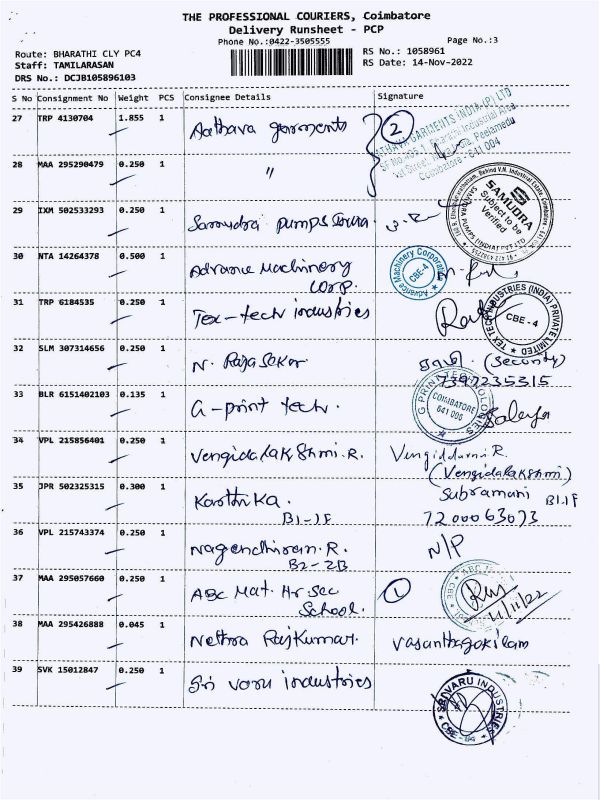 THE PROFESSIONAL COURIERS, Coimbatore
Delivery Runsheet - PCP
Phone No.:0422-3505555
Page No.:3
Route: BHARATHI CLY PC4
RS No.: 1058961
Staff: TAMILARASAN
RS Date: 14-Nov-2022
DRS No.: DCJB105896103
S No Consignment No Weight PCS Consignee Details Signature
27 TRP 4130704 1.855 1 Aathava garments 2
28 MAA 295290479 0.250 1 "
29 IXM 502533293 0.250 1 Samudra pumps
SAMUDRA
Subject to be
Verified
30 NTA 14264378 0.500 1 Advance Machinery
Corp.
Advance Machinery Corporation
CBE-4
31 TRP 6184535 0.250 1 Tex-tech industries
TEX TECH INDUSTRIES (INDIA) PRIVATE LIMITED
CBE - 4
32 SLM 307314656 0.250 1 N. Rajasekar (Security)
7397235315
33 BLR 6151402103 0.135 1 G-print tech.
G PRINT TECHNOLOGIES
COIMBATORE
641 006
34 VPL 215856401 0.250 1 Vengidalakshmi.R.
(Vengidalakshmi)
35 JPR 502325315 0.300 1 Karthika. Subramani B1-1F
B1-1F 7200063073
36 VPL 215743374 0.250 1 Nagendhiran.R. N/P
B2-2B
37 MAA 295057660 0.250 1 ABC Mat. Hr Sec 1
School.
38 MAA 295426888 0.045 1 Nethra Rajkumar. Vasanthagokilam
39 SVK 15012847 0.250 1 Sri varu industries
SRIVARU INDUSTRIES
CBE-04